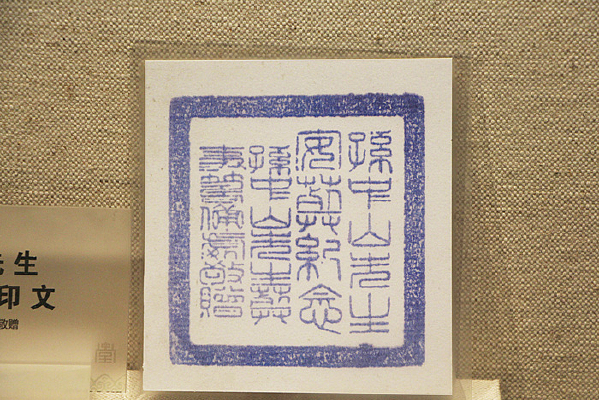 孫中山先生
安葬紀念
孫中山先生葬
事籌備處敬贈
生
印文
敬贈